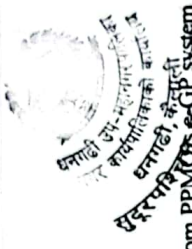 धनगढी उप-महानगरपालिका
नगर कार्यपालिकाको कार्यालय
धनगढी, कैलाली
सुदूरपश्चिम
m PPMO's e-GP system